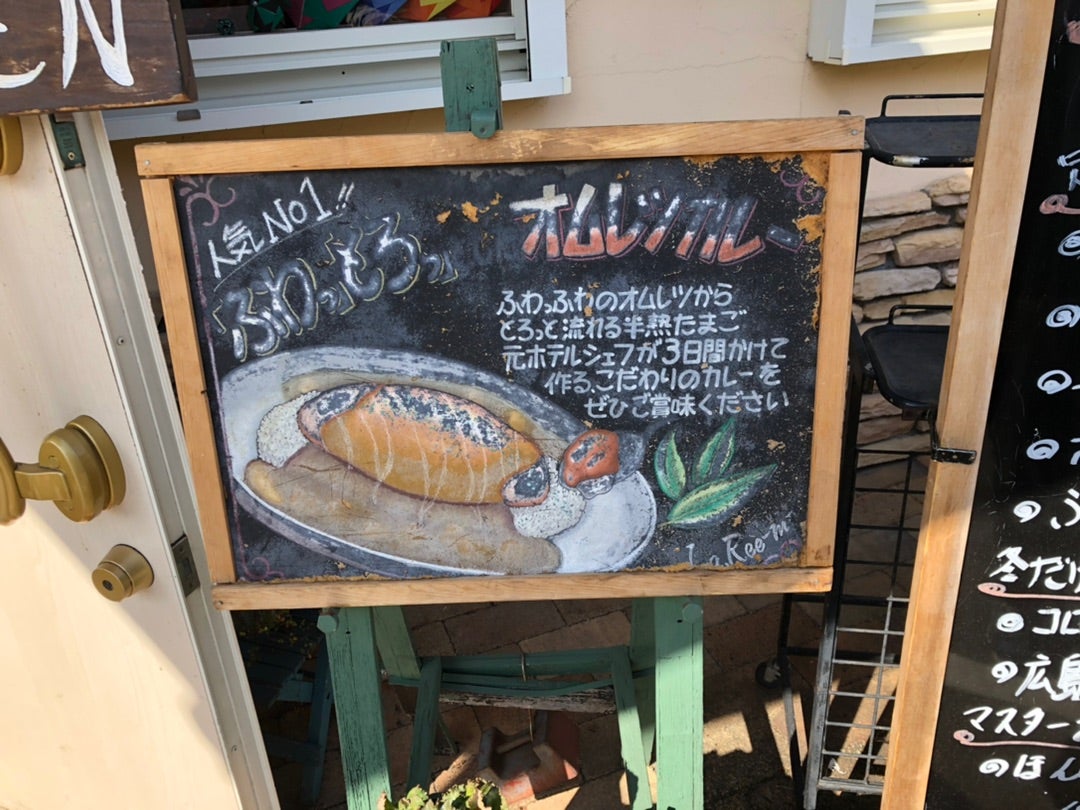 EN
人気No1!!
ふわっとろっ
オムレツカレー
ふわっふわのオムレツから
とろっと流れる半熟たまご
元ホテルシェフが3日間かけて
作る、こだわりのカレーを
ぜひご賞味ください
冬だけ
コロ
広島
マスター
のほん